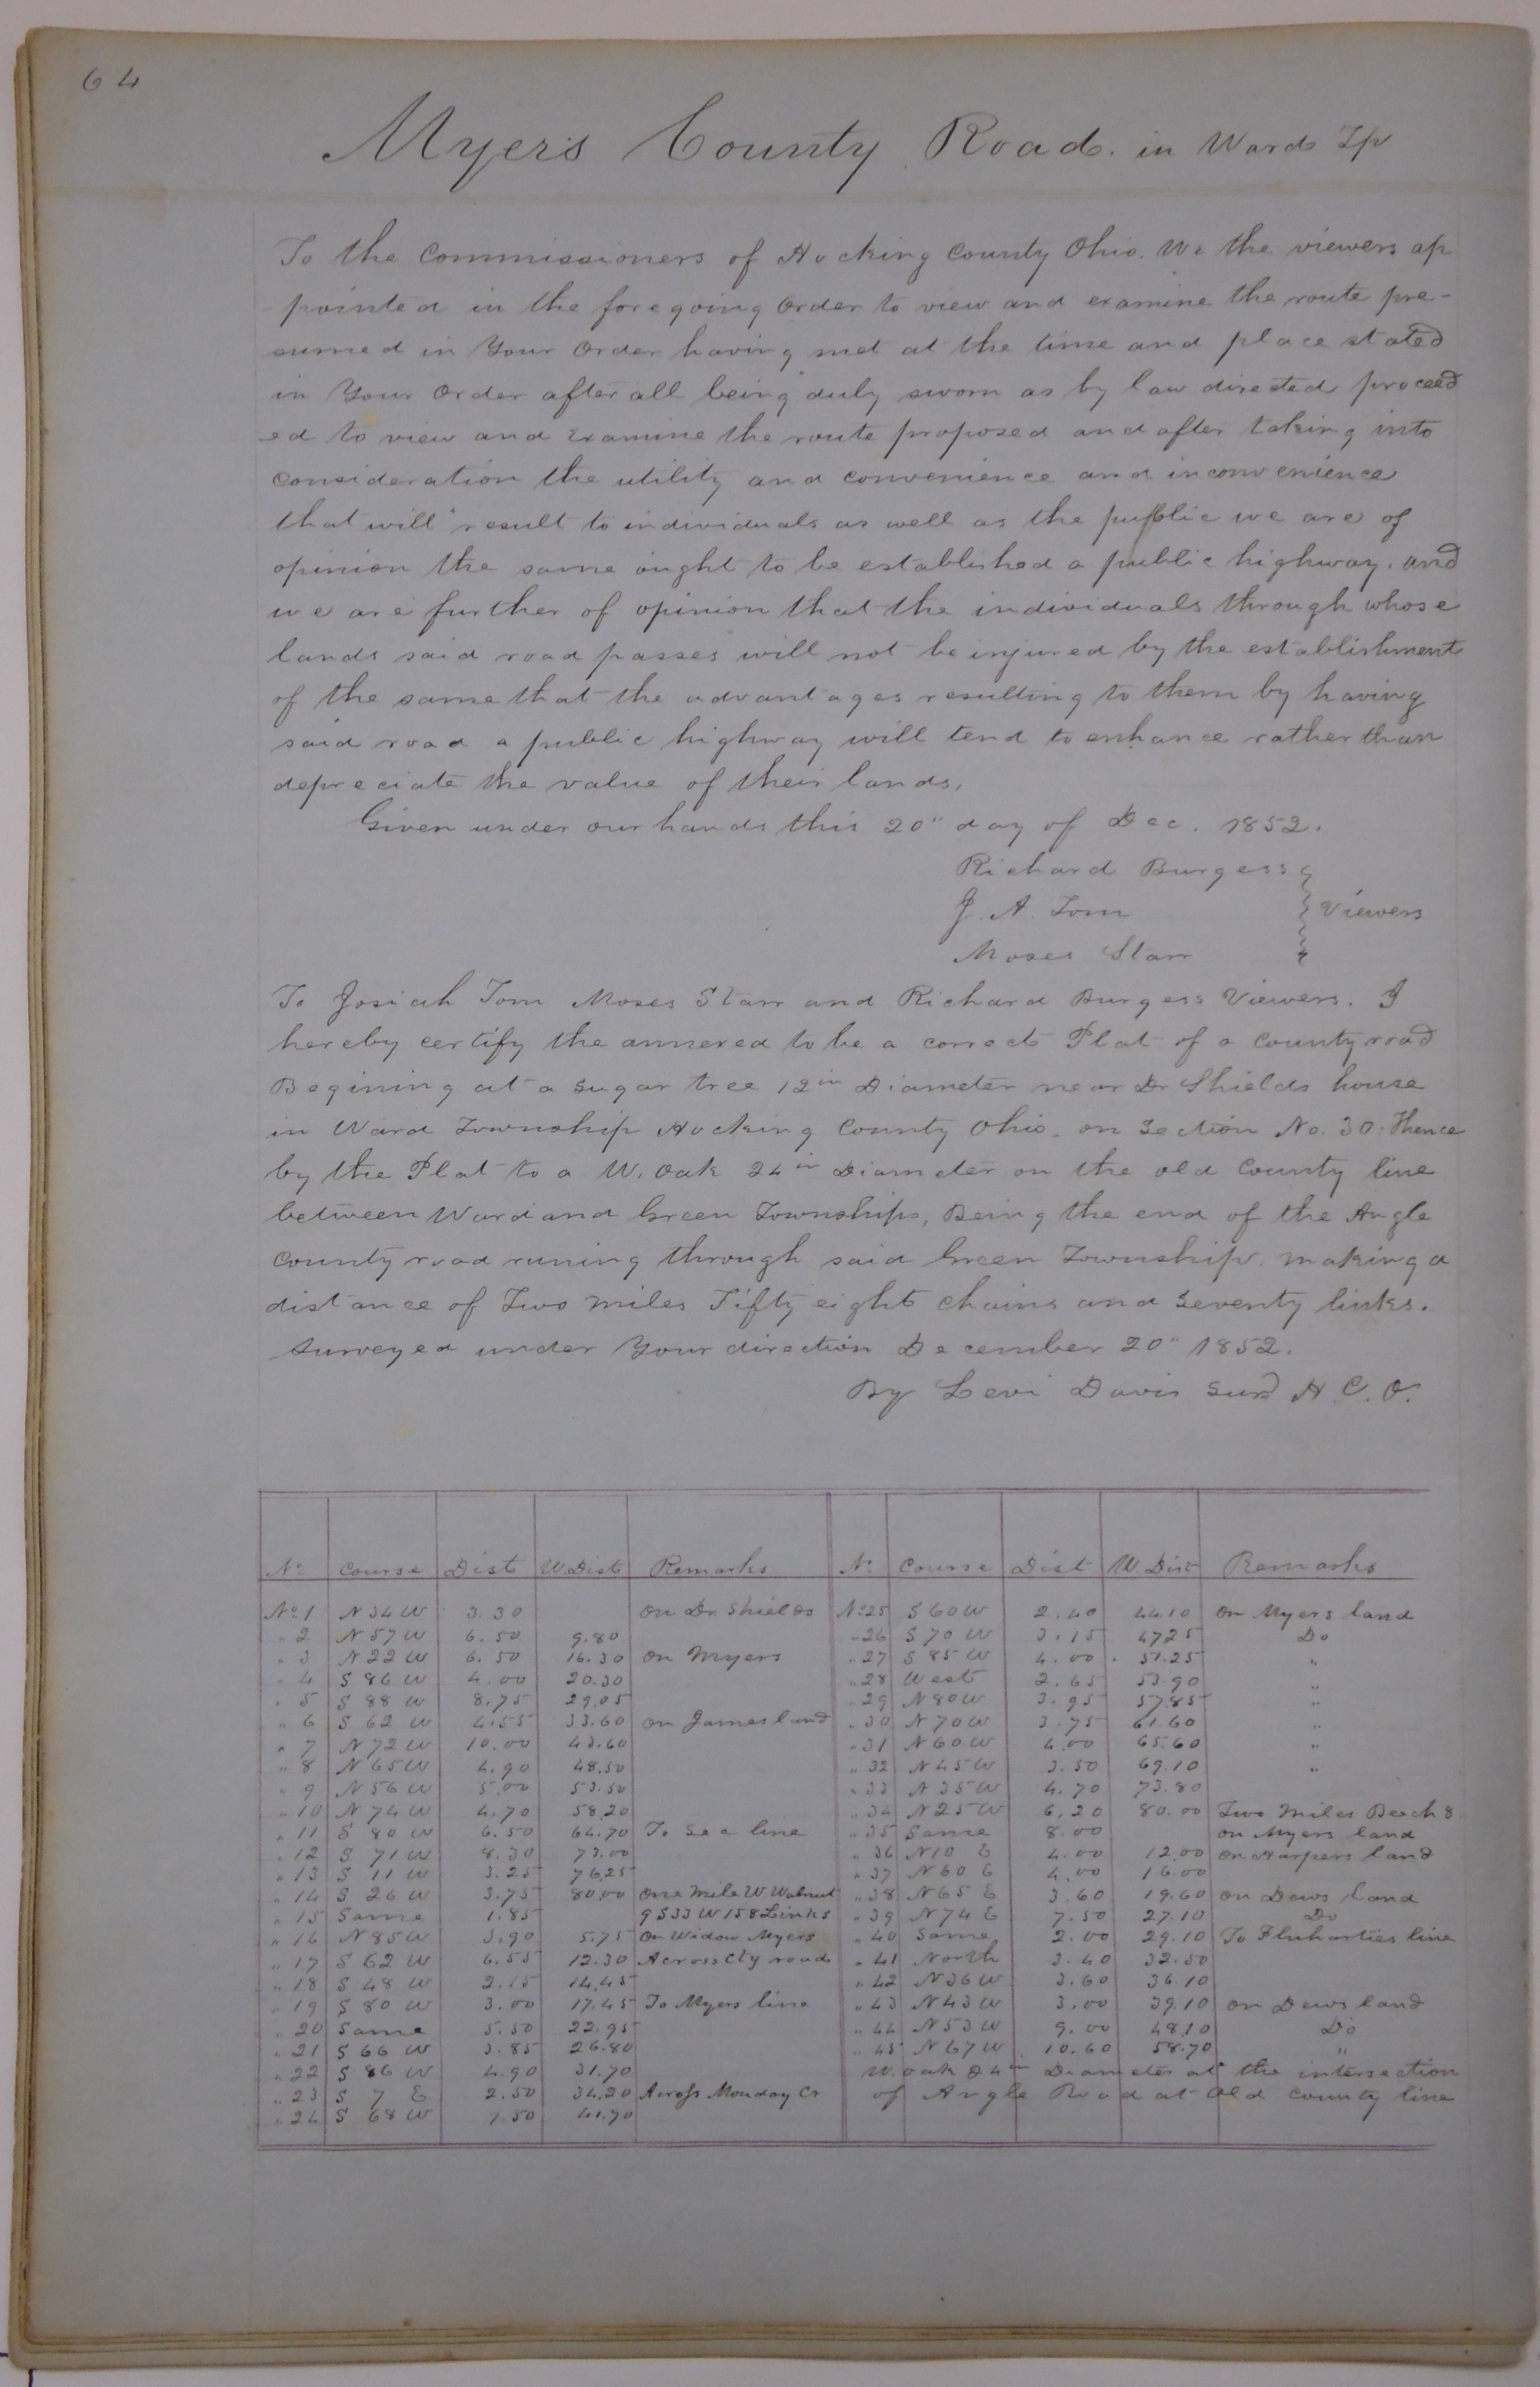 64
Myers County Road. in Ward Tp
To the Commissioners of Hocking County Ohio. We the viewers ap
-pointed in the foregoing Order to view and examine the route pre-
sumed in Your Order having met at the time and place stated
in Your Order after all being duly sworn as by law directed proceed
-ed to view and Examine the route proposed and after taking into
Consideration the utility and convenience and inconvenience
that will result to individuals as well as the public we are of
opinion the same ought to be established a public highway. and
we are further of opinion that the individuals through whose
lands said road passes will not be injured by the establishment
of the same that the advantages resulting to them by having
said road a public highway will tend to enhance rather than
depreciate the value of their lands.
Given under our hands this 20" day of Dec. 1852.
Richard Burgess
J. A. Tom } Viewers
Moses Starr
To Josiah Tom Moses Starr and Richard Burgess Viewers. I
hereby certify the annexed to be a correct Plat of a County road
Begining at a Sugar tree 12 in Diameter near Dr Shields house
in Ward Township Hocking County Ohio. on Section No. 30: Thence
by the Plat to a W. Oak 24 in Diameter on the old County line
between Ward and Green Townships, Being the end of the Angle
County road runing through said Green Township. making a
distance of Two miles Fifty eight Chains and Seventy links.
Surveyed under Your direction December 20" 1852.
By Levi Davis Surr H. C. O.
No Course Dist W.Dist Remarks No Course Dist W. Dist Remarks
No. 1 N 34 W 3.30 on Dr. Shields No 25 S 60 W 2.40 44.10 on Myers land
" 2 N 57 W 6.50 9.80 " 26 S 70 W 3.15 47.25 Do
" 3 N 22 W 6.50 16.30 on Myers " 27 S 85 W 4.00 51.25 "
" 4 S 86 W 4.00 20.30 " 28 West 2.65 53.90 "
" 5 S 88 W 8.75 29.05 " 29 N 80 W 3.95 57.85 "
" 6 S 62 W 4.55 33.60 on James land " 30 N 70 W 3.75 61.60 "
" 7 N 72 W 10.00 43.60 " 31 N 60 W 4.00 65.60 "
" 8 N 65 W 4.90 48.50 " 32 N 45 W 3.50 69.10 "
" 9 N 56 W 5.00 53.50 " 33 N 35 W 4.70 73.80
" 10 N 74 W 4.70 58.20 " 34 N 25 W 6.20 80.00 Two Miles Beech 8
" 11 S 80 W 6.50 64.70 To Sec line " 35 Same 8.00 on Myers land
" 12 S 71 W 8.30 73.00 " 36 N 10 E 4.00 12.00 on Harpers land
" 13 S 11 W 3.25 76.25 " 37 N 60 E 4.00 16.00
" 14 S 26 W 3.75 80.00 One Mile W Walnut " 38 N 65 E 3.60 19.60 on Dews land
" 15 Same 1.85 9 S33 W 158 Links " 39 N 74 E 7.50 27.10 Do
" 16 N 85 W 3.90 5.75 On Widow Myers " 40 Same 2.00 29.10 To Fluharties line
" 17 S 62 W 6.55 12.30 Across Cty road " 41 North 3.40 32.50
" 18 S 48 W 2.15 14.45 " 42 N 36 W 3.60 36.10
" 19 S 80 W 3.00 17.45 To Myers line " 43 N 43 W 3.00 39.10 on Dews land
" 20 Same 5.50 22.95 " 44 N 53 W 9.00 48.10 Do
" 21 S 66 W 3.85 26.80 " 45 N 67 W 10.60 58.70 "
" 22 S 86 W 4.90 31.70 W. oak 24 in Diameter at the intersection
" 23 S 7 E 2.50 34.20 Across Monday Cr of Angle Road at Old County line
" 24 S 68 W 7.50 41.70